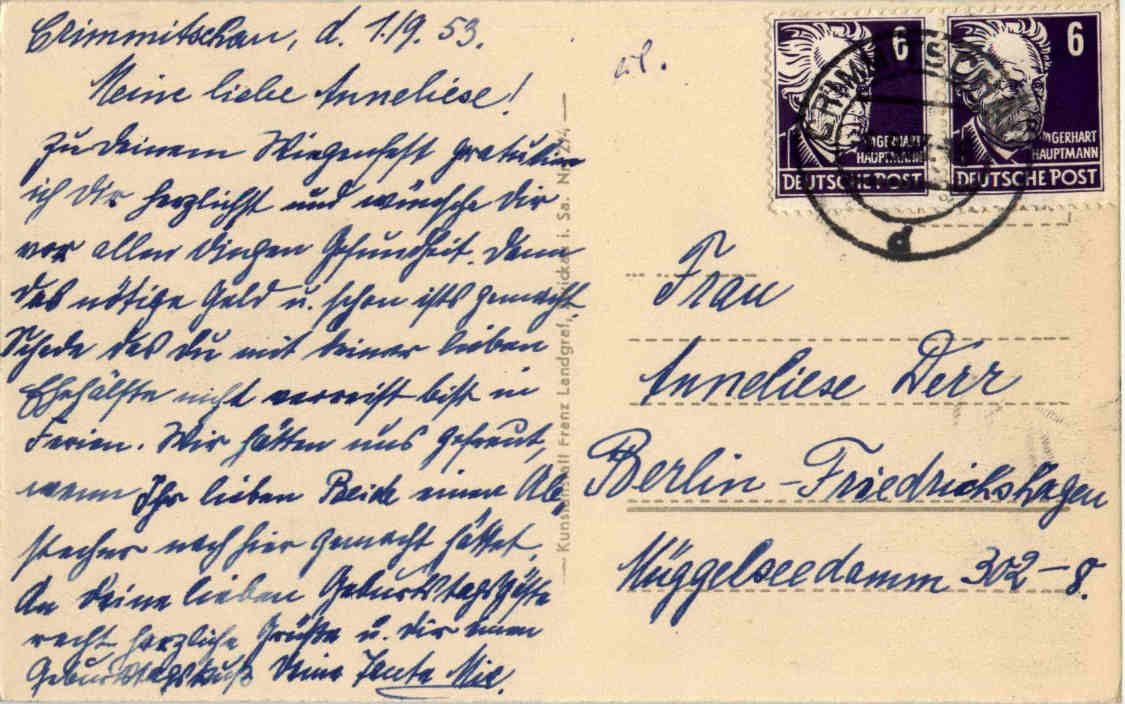 Crimmitschau, d. 1./9. 53.
Meine liebe Anneliese!
Zu Deinem Wiegenfest gratuliere
ich Dir herzlichst und wünsche Dir
vor allen Dingen Gesundheit. Dann
das nötige Geld u. schon ists gemacht,
Schade das Du mit Deiner lieben
Ehehälfte nicht verreist bist in
Ferien. Wir hätten uns gefreut,
wenn Ihr lieben Beide einen Ab-
stecher nach hier gemacht hättet.
An Deine lieben Geburtstagsgäste
recht herzliche Grüße u. Dir einen
Geburtstagskuß Deine Tante
Kunstanstalt Franz Landgraf, Zwickau i. Sa. Nr.
6
GERHART
HAUPTMANN
DEUTSCHE POST
6
GERHART
HAUPTMANN
DEUTSCHE POST
CRIMMITSCHAU
d
Frau
Anneliese Derr
Berlin-Friedrichshagen
Müggelseedamm 302-8.